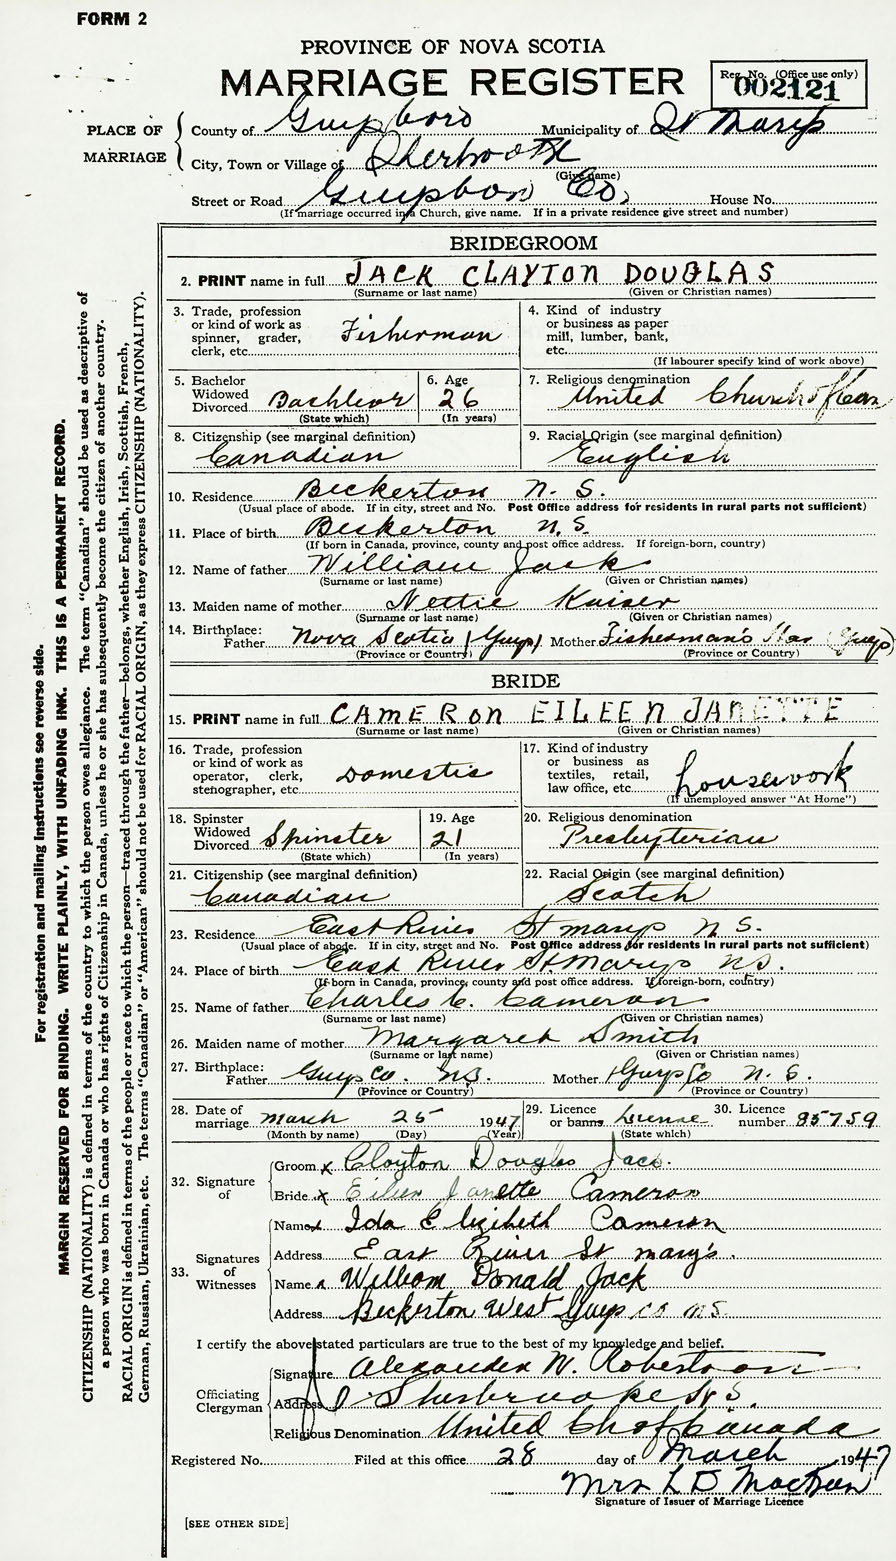 FORM 2
PROVINCE OF NOVA SCOTIA
MARRIAGE REGISTER
Reg. No. (Office use only)
002121
PLACE OF MARRIAGE
County of Guysboro Municipality of St Marys
City, Town or Village of Sherbrooke
(Give name)
Street or Road Guysboro Co. House No.
(If marriage occurred in a Church, give name. If in a private residence give street and number)
BRIDEGROOM
2. PRINT name in full JACK CLAYTON DOUGLAS
(Surname or last name) (Given or Christian names)
3. Trade, profession or kind of work as spinner, grader, clerk, etc. Fisherman
4. Kind of industry or business as paper mill, lumber, bank, etc.
(If labourer specify kind of work above)
5. Bachelor Widowed Divorced Bachleor
(State which)
6. Age 26
(In years)
7. Religious denomination United Church of Can
8. Citizenship (see marginal definition) Canadian
9. Racial Origin (see marginal definition) English
10. Residence Beckerton N. S.
(Usual place of abode. If in city, street and No. Post Office address for residents in rural parts not sufficient)
11. Place of birth Beckerton N.S.
(If born in Canada, province, county and post office address. If foreign-born, country)
12. Name of father William Jack
(Surname or last name) (Given or Christian names)
13. Maiden name of mother Nettie Kaiser
(Surname or last name) (Given or Christian names)
14. Birthplace: Father Nova Scotia (Guys) Mother Fisherman's Har (Guys)
(Province or Country) (Province or Country)
BRIDE
15. PRINT name in full CAMERON EILEEN JANETTE
(Surname or last name) (Given or Christian names)
16. Trade, profession or kind of work as operator, clerk, stenographer, etc. Domestic
17. Kind of industry or business as textiles, retail, law office, etc. housework
(If unemployed answer "At Home")
18. Spinster Widowed Divorced Spinster
(State which)
19. Age 21
(In years)
20. Religious denomination Presbyterian
21. Citizenship (see marginal definition) Canadian
22. Racial Origin (see marginal definition) Scotch
23. Residence East River St marys N S.
(Usual place of abode. If in city, street and No. Post Office address for residents in rural parts not sufficient)
24. Place of birth East River St. Marys NS.
(If born in Canada, province, county and post office address. If foreign-born, country)
25. Name of father Charles C. Cameron
(Surname or last name) (Given or Christian names)
26. Maiden name of mother Margaret Smith
(Surname or last name) (Given or Christian names)
27. Birthplace: Father Guys Co. NS. Mother Guys Co N. S.
(Province or Country) (Province or Country)
28. Date of marriage March 25 1947
(Month by name) (Day) (Year)
29. Licence or banns License
(State which)
30. Licence number 85759
32. Signature of
Groom x Clayton Douglas Jack.
Bride x Eileen Janette Cameron
33. Signatures of Witnesses
Name x Ida Elizibeth Cameron
Address East River St mary's.
Name x William Donald Jack
Address Beckerton West Guys co NS.
I certify the above stated particulars are true to the best of my knowledge and belief.
Officiating Clergyman
Signature Alexander W. Robertson
Address Sherbrooke N S.
Religious Denomination United Ch of Canada
Registered No. Filed at this office 28 day of March 1947
Mrs L D
Signature of Issuer of Marriage Licence
[SEE OTHER SIDE]
For registration and mailing instructions see reverse side.
MARGIN RESERVED FOR BINDING. WRITE PLAINLY, WITH UNFADING INK. THIS IS A PERMANENT RECORD.
CITIZENSHIP (NATIONALITY) is defined in terms of the country to which the person owes allegiance. The term "Canadian" should be used as descriptive of
a person who was born in Canada or who has rights of Citizenship in Canada, unless he or she has subsequently become the citizen of another country.
RACIAL ORIGIN is defined in terms of the people or race to which the person—traced through the father—belongs, whether English, Irish, Scottish, French,
German, Russian, Ukrainian, etc. The terms "Canadian" or "American" should not be used for RACIAL ORIGIN, as they express CITIZENSHIP (NATIONALITY).